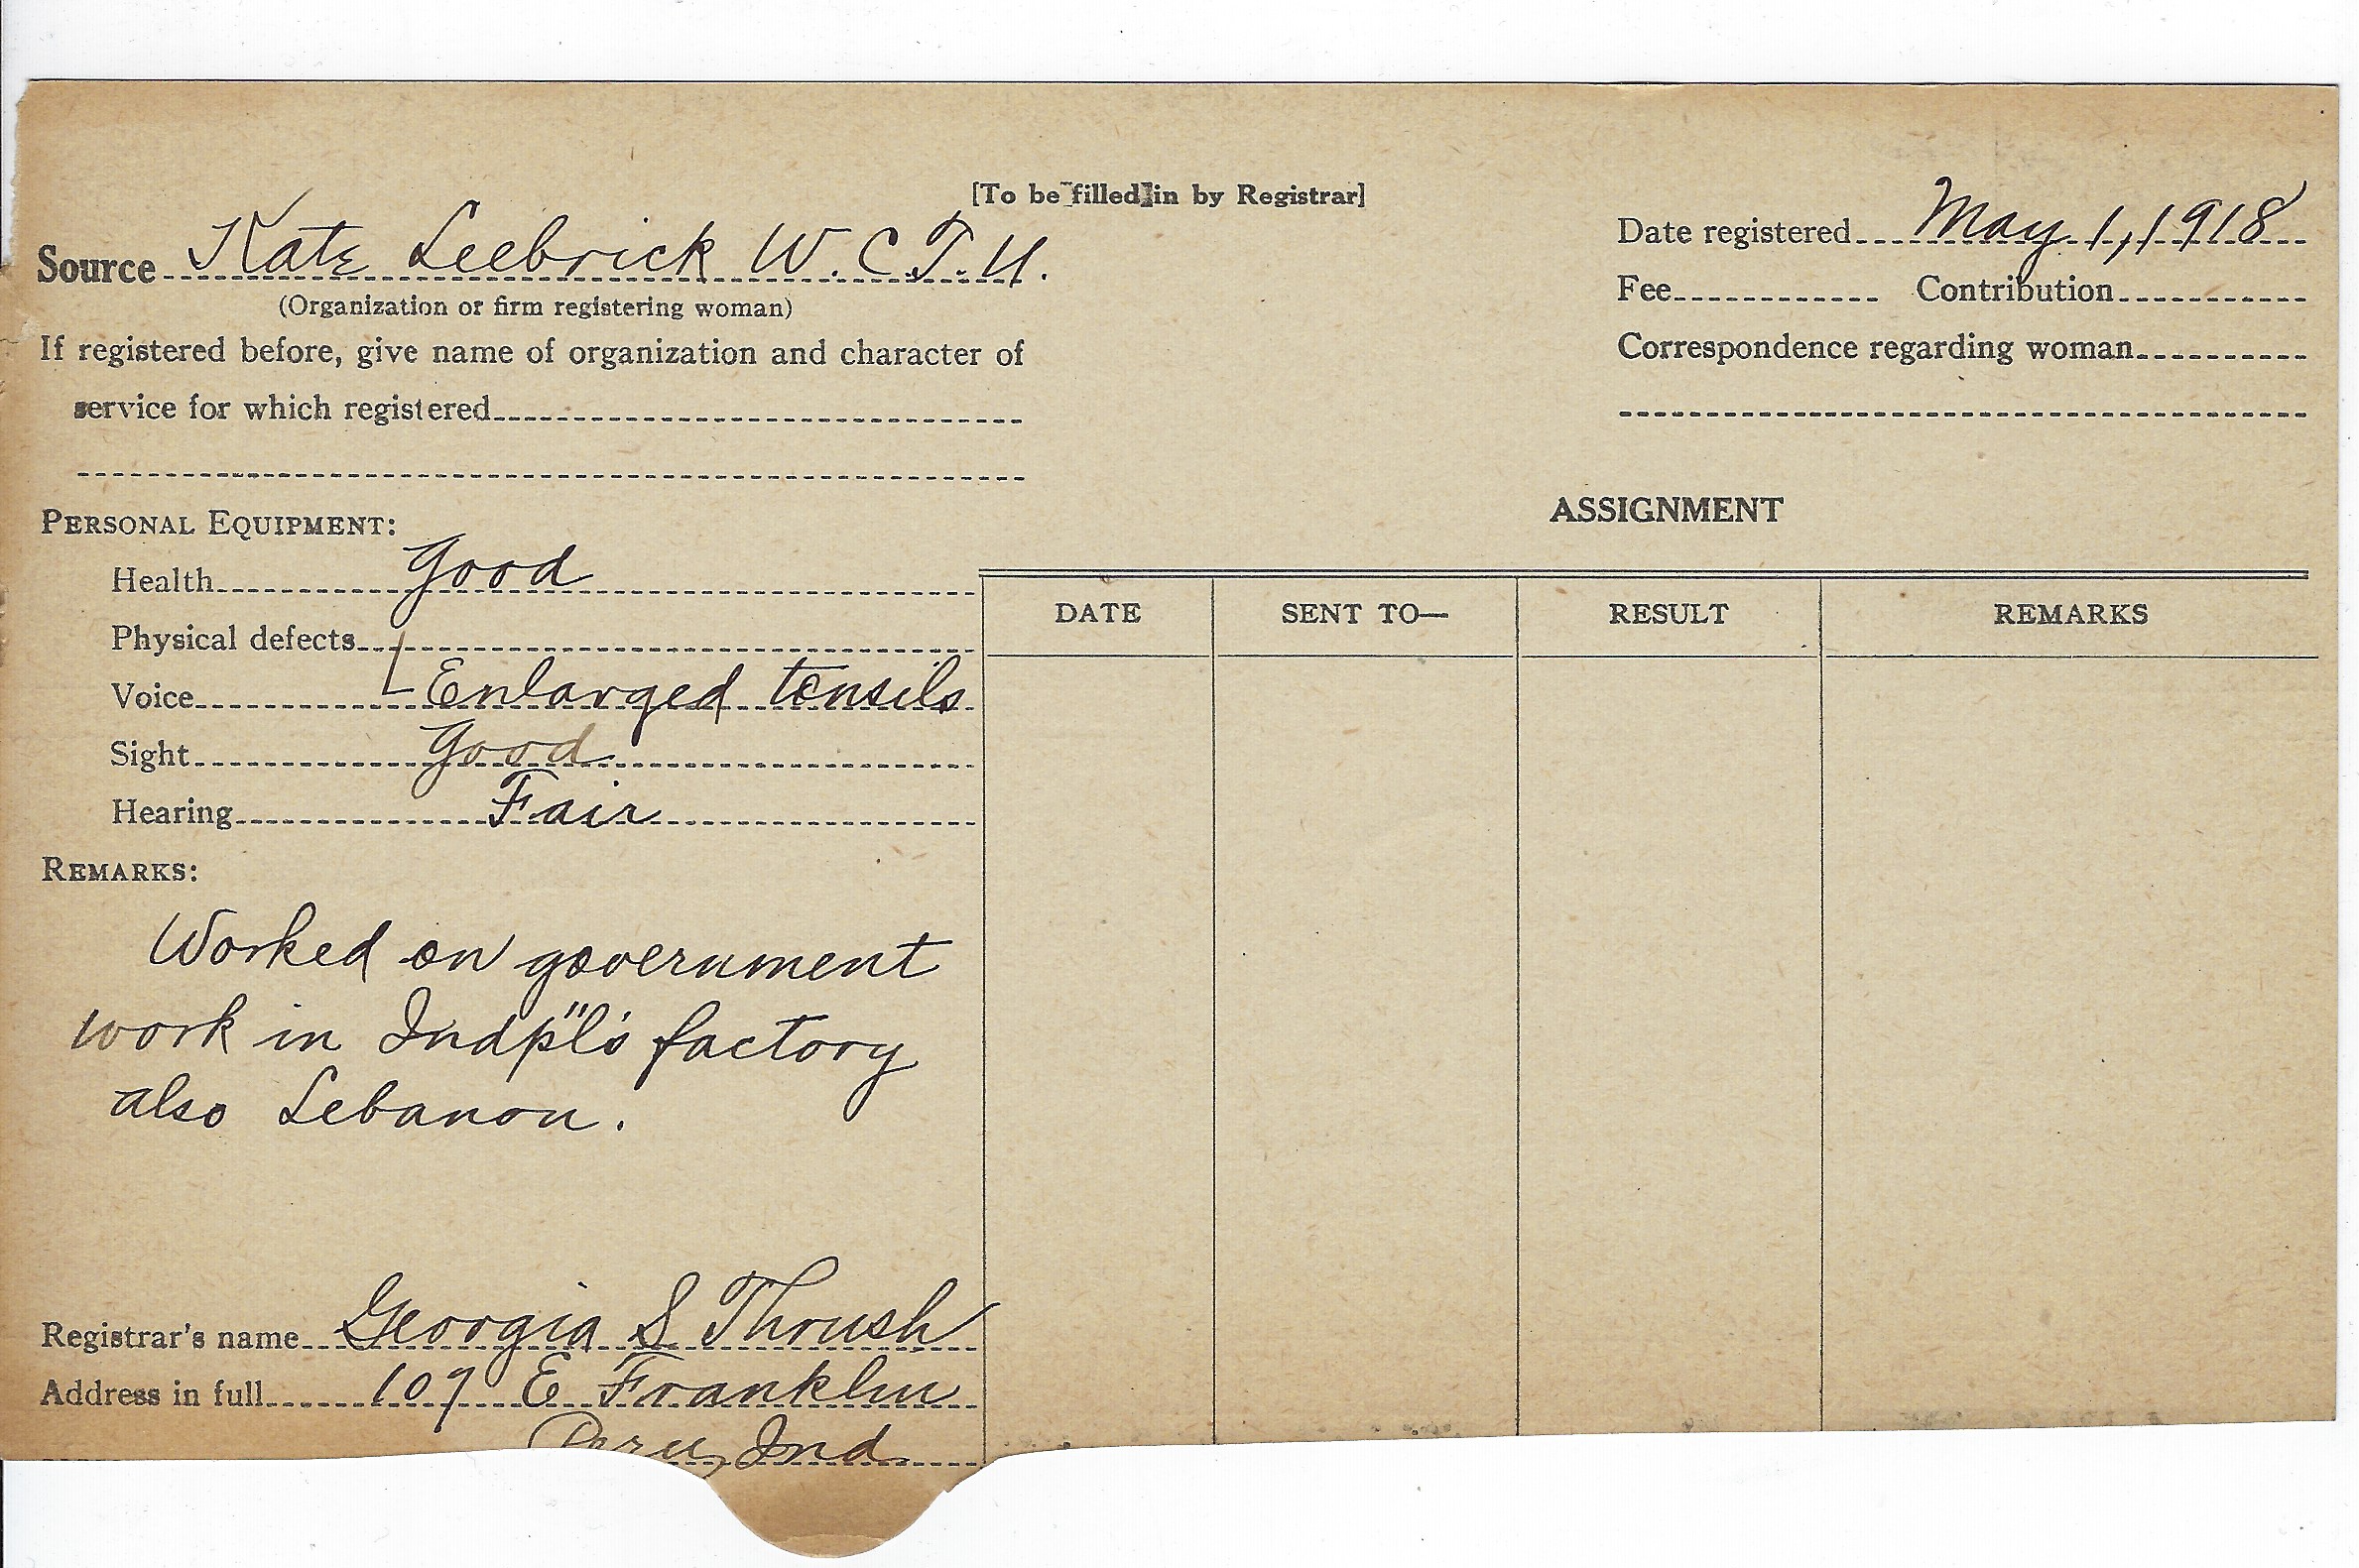 [To be filled in by Registrar]
Source Kate Leebrick W.C.T.U.
(Organization or firm registering woman)
If registered before, give name of organization and character of
service for which registered
Date registered May 1, 1918
Fee Contribution
Correspondence regarding woman
PERSONAL EQUIPMENT:
Health Good
Physical defects
Voice Enlarged tonsils
Sight Good
Hearing Fair
REMARKS:
Worked on government
work in Indpl's factory
also Lebanon.
Registrar's name Georgia S Thrush
Address in full 109 E Franklin
Peru, Ind
ASSIGNMENT
DATE SENT TO— RESULT REMARKS